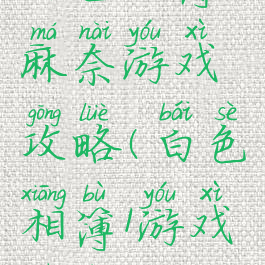 má nài yóu xì
麻奈游戏
gōng lüè bái sè
攻略(白色
xiāng bù yóu xì
相簿1游戏